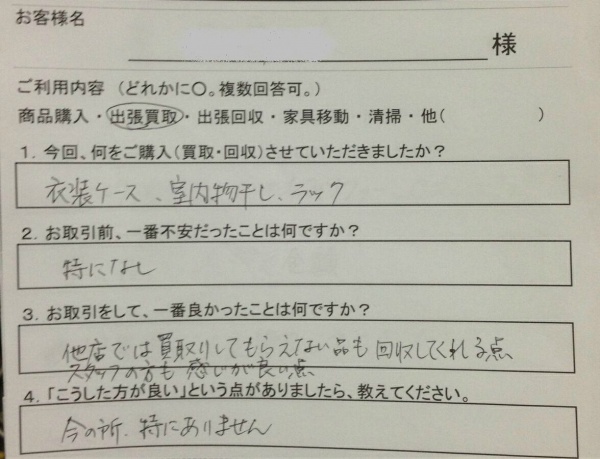 お客様名
様
ご利用内容 (どれかに〇。複数回答可。)
商品購入・出張買取・出張回収・家具移動・清掃・他( )
1. 今回、何をご購入(買取・回収)させていただきましたか?
衣装ケース、室内物干し、ラック
2. お取引前、一番不安だったことは何ですか?
特になし
3. お取引をして、一番良かったことは何ですか?
他店では買取りしてもらえない品も回収してくれる点
スタッフの方も感じが良い点
4. 「こうした方が良い」という点がありましたら、教えてください。
今の所、特にありません